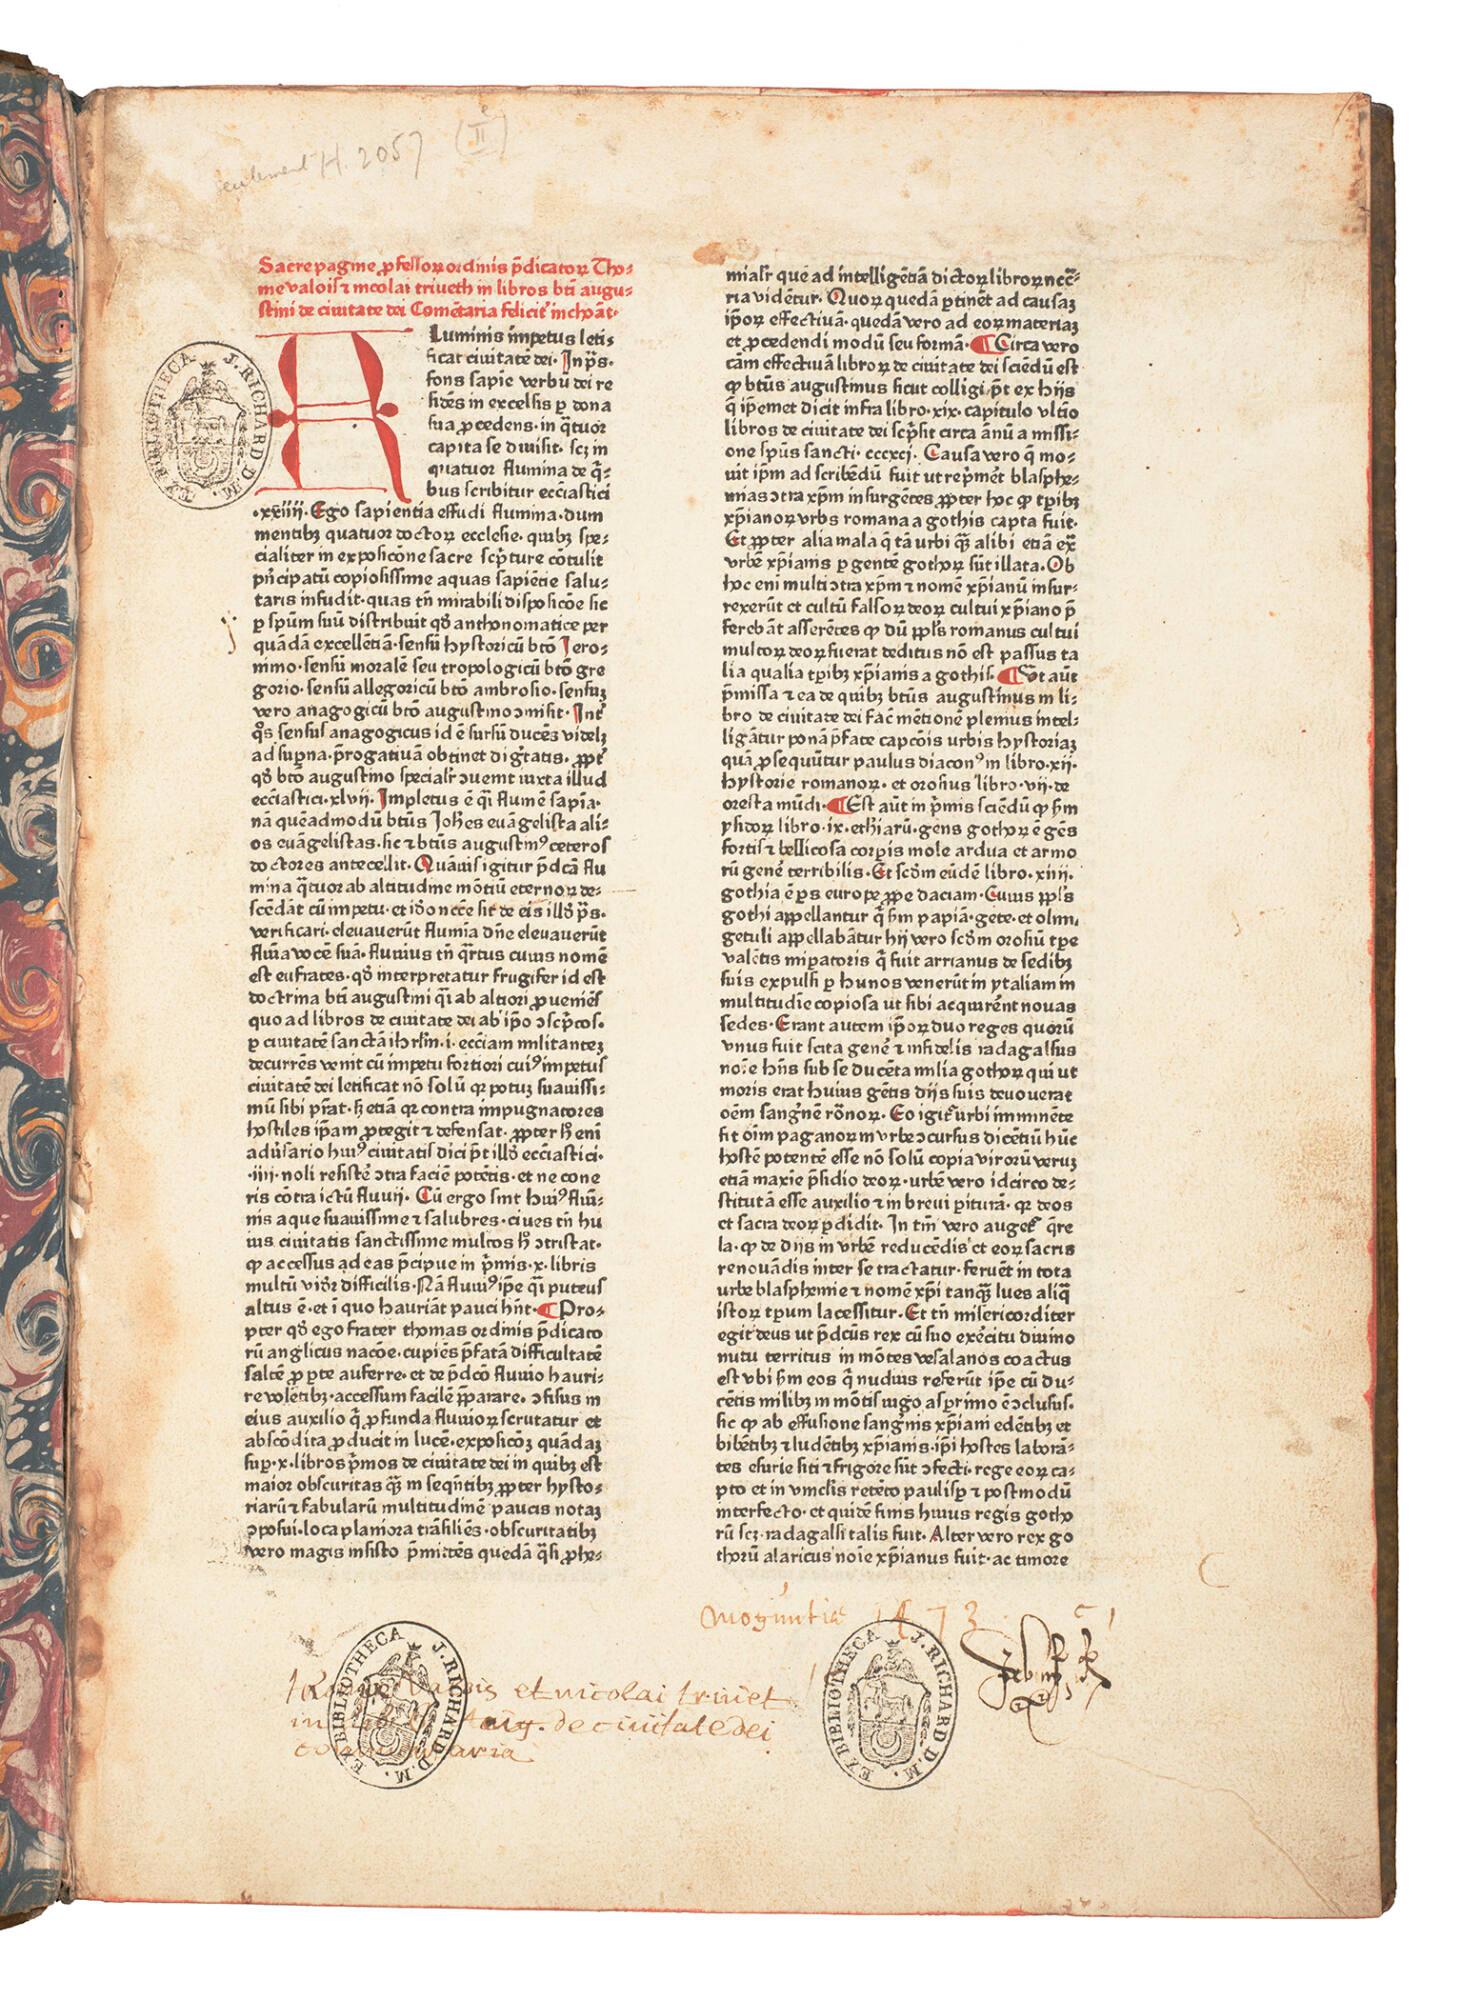 seulement H. 2057 (II)
Sacre pagine ꝓfessoꝝ ordinis p̄dicatoꝝ Tho-
me valois ⁊ nicolai triueth in libros bt̄i augu-
stini de ciuitate dei Comētaria feliciť inchoāt.
Luminis īmpetus leti-
ficat ciuitatē dei. In p̄s.
fons sapiē verbū dei re
sidēs in excelsis ꝑ dona
sua ꝓcedens. in q̄tuor
capita se diuisit. scꝫ in
quatuor flumina de q̄-
bus scribitur ecc̄iastici
.xxiiij. Ego sapientia effudi flumina. dum
mentibꝫ quatuor doctoꝝ ecclesie. quibꝫ spe-
cialiter in exposicōne sacre sc̄pture cōtulit
pn̄cipatū copiosissime aquas sapiētie salu-
taris infudit. quas tn̄ mirabili disposicōe sic
ꝑ spūm suū distribuit qd̄ anthonomatice per
quādā excellētiā. sensū hystoricū bt̄o Iero-
nimo. sensū moralē seu tropologicū bt̄o gre
gorio. sensū allegoricū bt̄o ambrosio. sensuꝫ
vero anagogicū bt̄o augustino ↄmisit. Int̄
q̄s sensus anagogicus id ē sursū ducēs videlꝫ
ad suꝑna. p̄rogatiuā obtinet dig̃tatis. ꝓpt̄
qd̄ bt̄o augustino specialr̄ ↄuenit iuxta illud
ecc̄iastici. xlvij. Impletus ē q̄i flumē sapīa.
nā quēadmodū bt̄us Ioh̄es euāgelista ali-
os euāgelistas. sic ⁊ bt̄us augustinꝰ ceteros
doctores antecellit. Quāuis igitur p̄dc̄ā flu
mina q̄tuor ab altitudine mōtiū eternoꝝ de-
scēdāt cū impetu. et iō ncc̄e sit de eis illd̄ p̄s.
verificari. eleuauerūt flumīa dn̄e eleuauerūt
flūia vocē suā. fluuius tn̄ q̄rtus cuius nomē
est eufrates. qd̄ interpretatur frugifer id est
doctrina bt̄i augustini q̄i ab altiori ꝓueniēs
quo ad libros de ciuitate dei ab ip̄o ↄsc̄ptos.
ꝑ ciuitatē sanctā ih̄rlm̄. i. ecc̄iam militanteꝫ
decurrēs venit cū impetu fortiori cuiꝰ impetus
ciuitatē dei letificat nō solū qꝛ potuꝫ suauissi-
mū sibi p̄stat. sꝫ etiā qꝛ contra impugnatores
hostiles ip̄am ꝓtegit ⁊ defensat. ꝓpter hꝫ eni
adūsario huiꝰ ciuitatis dici p̄t illd̄ ecc̄iastici.
.iiij. noli resistē ↄtra faciē potētis. et ne cone
ris cōtra ictū fluuij. Cū ergo sint huiꝰ flūi-
nis aque suauissime ⁊ salubres. ciues tn̄ hu
ius ciuitatis sanctissime multos hꝫ ↄtristat.
ꝙ accessus ad eas p̄cipue in p̄mis. x. libris
multū vidēr difficilis. Nā fluuiꝰ ip̄e q̄i puteus
altus ē. et ī quo hauriāt pauci hn̄t. ¶ Pro-
pter qd̄ ego frater thomas ordinis p̄dicato
rū anglicus nacōe. cupiēs p̄fatā difficultatē
saltē ꝓ ꝑte auferre. et de p̄dc̄o fluuio hauri-
re volētibꝫ. accessum facilē p̄parare. ↄfisus in
eius auxilio q̄ ꝓfunda fluuioꝝ scrutatur et
abscōdita ꝓducit in lucē. exposicōꝫ quādaꝫ
suꝑ. x. libros p̄mos de ciuitate dei in quibꝫ est
maior obscuritas qꝫ̄ in seqn̄tibꝫ ꝓpter hysto-
riarū ⁊ fabularū multitudinē paucis notaꝫ
ↄposui. loca planiora trāsiliēs. obscuritatibꝫ
vero magis insisto p̄mittēs quedā q̄si ꝓhe-
mialr̄ que ad intelligētiā dictoꝝ libroꝝ nccā-
ria vidētur. Quoꝝ quedā ꝑtinēt ad causaꝫ
ip̄oꝝ effectiuā. quedā vero ad eoꝝ materiaꝫ
et ꝓcedendi modū seu formā. ¶ Circa vero
cām effectiuā libroꝝ de ciuitate dei sciēdū est
ꝙ bt̄us augustinus sicut colligi p̄t ex hijs
q̄ ip̄emet dicit infra libro. xix. capitulo vltīo
libros de ciuitate dei sc̄psit circa ānū a missi-
one spūs sancti. cccxcj. Causa vero q̄ mo-
uit ip̄m ad scribēdū fuit ut rep̄met blasphe-
mias ↄtra xp̄m insurgētes ꝓpter hoc ꝙ tp̄ibꝫ
xp̄ianoꝝ vrbs romana a gothis capta fuit.
Et ꝓpter alia mala q̄ tā urbi qꝫ̄ alibi etiā ext̄
vrbē xp̄ianis ꝑ gentē gothoꝝ sūt illata. Ob
hoc eni multi ↄtra xp̄m ⁊ nomē xp̄ianū insur-
rexerūt et cultū falsoꝝ deoꝝ cultui xp̄iano p̄
ferebāt asserētes ꝙ dū ppl̄s romanus cultui
multoꝝ deoꝝ fuerat deditus nō est passus ta
lia qualia tp̄ibꝫ xp̄ianis a gothis. ¶ Vt aūt
p̄missa ⁊ ea de quibꝫ bt̄us augustinus in li-
bro de ciuitate dei fac̄ mētionē plenius intel-
ligātur ponā p̄face capcōis urbis hystoriaꝫ
quā ꝓsequūtur paulus diaconꝰ in libro. xij.
hystorie romanoꝝ. et orosius libro. vij. de
ormesta mūdi. ¶ Est aūt in p̄mis sciēdū ꝙ scd̄m
ysidoꝝ libro. ix. ethiarū. gens gothoꝝ ē gēs
fortis ⁊ bellicosa corꝑis mole ardua et armo
rū genē terribilis. Et scd̄m eūdē libro. xiiij.
gothia ē ꝑs europe ꝓpe daciam. Cuius ppl̄s
gothi appellantur q̄ scd̄m papiā. gete. et olim
getuli appellabātur hij vero scd̄m orosiū tp̄e
valētis imꝑatoris q̄ fuit arrianus de sedibꝫ
suis expulsi ꝑ hunos venerūt in ytaliam in
multitudīe copiosa ut sibi acquirent nouas
sedes. Erant autem ip̄oꝝ duo reges quorū
vnus fuit scita genē ⁊ infidelis radagaisus
noīe hn̄s sub se ducēta milia gothoꝝ qui ut
moris erat huius gētis dijs suis deuouerat
oēm sang̃nē rōnoꝝ. Eo igiť urbi imminēte
fit oīm paganoꝝ in vrbe ↄcursus dicētiū hūc
hostē potentē esse nō solū copia virorū veruꝫ
etiā maxīe p̄sidio deoꝝ. urbē vero idcirco de-
stitutā esse auxilio ⁊ in breui ꝑiturā. qꝛ deos
et sacra deoꝝ ꝑdidit. In tm̄ vero augeť q̄re
la. ꝙ de dijs in vrbē reducēdis et eoꝝ sacris
renouādis inter se tractatur. feruēt in tota
urbe blasphemie ⁊ nomē xp̄i tanqꝫ̄ lues aliq̄
istoꝝ tp̄um lacessitur. Et tn̄ misericorditer
egit deus ut p̄dc̄us rex cū suo exercitu diuino
nutu territus in mōtes vesalanos coactus
est vbi scd̄m eos q̄ nudius referūt ip̄e cū du-
cētis milibꝫ in mōtis iugo asꝑrimo ē ↄclusus.
sic ꝙ ab effusione sang̃nis xp̄iani edētibꝫ et
bibētibꝫ ⁊ ludētibꝫ xp̄ianis. ip̄i hostes laborā-
tes esurie siti ⁊ frigore sūt ↄfecti. rege eoꝝ ca-
pto et in vinclis retēto paulisꝑ ⁊ postmodū
interfecto. et quidē finis huius regis gotho
rū scꝫ. radagaisi talis fuit. Alter vero rex go
thorū alaricus noīe xp̄ianus fuit. ac timore
Moguntiæ 1473
et nicolai triuet
in Aug. de ciuitate dei
commentaria
EX BIBLIOTHECA J. RICHARD D. M.
EX BIBLIOTHECA J. RICHARD D. M.
EX BIBLIOTHECA J. RICHARD D. M.